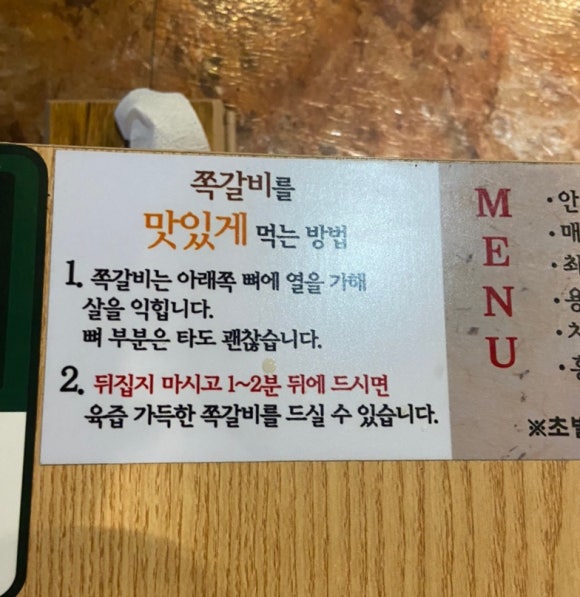 쪽갈비를
맛있게 먹는 방법
1. 쪽갈비는 아래쪽 뼈에 열을 가해
살을 익힙니다.
뼈 부분은 타도 괜찮습니다.
2. 뒤집지 마시고 1~2분 뒤에 드시면
육즙 가득한 쪽갈비를 드실 수 있습니다.
MENU